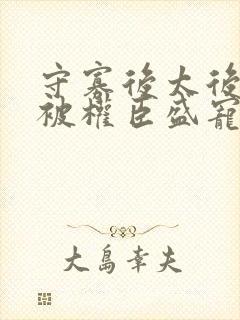 守寡後太後
被權臣盛寵
大島幸夫